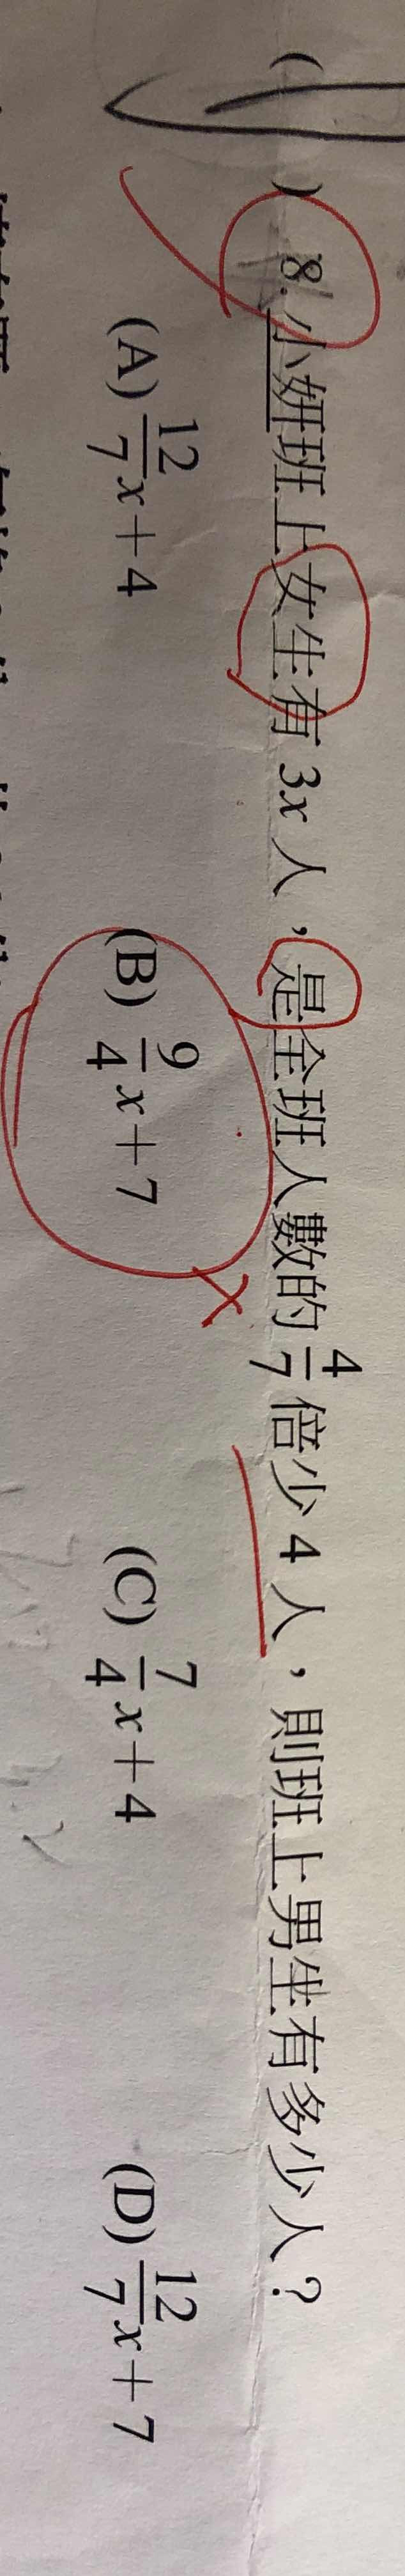 (　) 8. 小妍班上女生有 3x 人，是全班人數的 4/7 倍少 4 人，則班上男生有多少人？
(A) 12/7 x + 4　(B) 9/4 x + 7　(C) 7/4 x + 4　(D) 12/7 x + 7